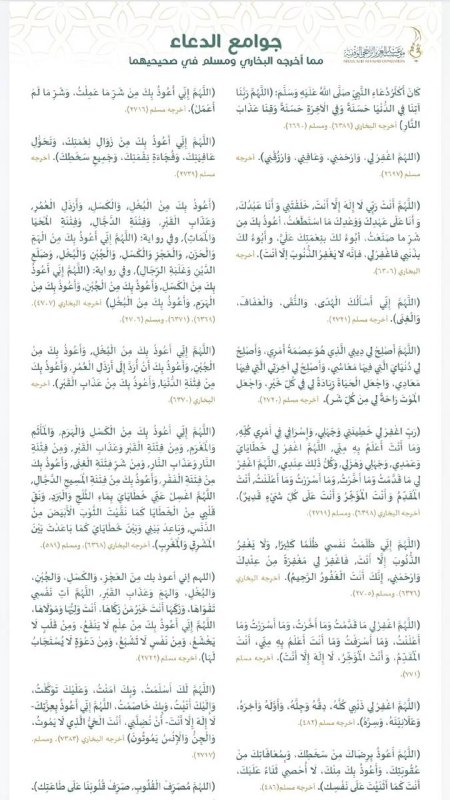 جوامع الدعاء
مما أخرجه البخاري ومسلم في صحيحيهما
كَانَ أَكْثَرُ دُعَاءِ النَّبِيِّ صَلَّى اللَّهُ عَلَيْهِ وَسَلَّمَ: (اللَّهُمَّ رَبَّنَا
آتِنَا فِي الدُّنْيَا حَسَنَةً وَفِي الْآخِرَةِ حَسَنَةً وَقِنَا عَذَابَ
النَّارِ) أخرجه البخاري (٦٣٨٩)، ومسلم (٢٦٩٠).
(اللهُمَّ اغْفِرْ لِي، وَارْحَمْنِي، وَعَافِنِي، وَارْزُقْنِي). أخرجه مسلم
(٢٦٩٧)
(اللَّهُمَّ أَنْتَ رَبِّي لَا إِلَهَ إِلَّا أَنْتَ، خَلَقْتَنِي وَأَنَا عَبْدُكَ،
وَأَنَا عَلَى عَهْدِكَ وَوَعْدِكَ مَا اسْتَطَعْتُ، أَعُوذُ بِكَ مِنْ
شَرِّ مَا صَنَعْتُ، أَبُوءُ لَكَ بِنِعْمَتِكَ عَلَيَّ، وَأَبُوءُ لَكَ
بِذَنْبِي فَاغْفِرْ لِي، فَإِنَّه لَا يَغْفِرُ الذُّنُوبَ إِلَّا أَنْتَ). أخرجه
البخاري (٦٣٠٦)
(اللَّهُمَّ إِنِّي أَسْأَلُكَ الْهُدَى، وَالتُّقَى، وَالْعَفَافَ،
وَالْغِنَى). أخرجه مسلم (٢٧٢١)
(اللَّهُمَّ أَصْلِحْ لِي دِينِي الَّذِي هُوَ عِصْمَةُ أَمْرِي، وَأَصْلِحْ
لِي دُنْيَايَ الَّتِي فِيهَا مَعَاشِي، وَأَصْلِحْ لِي آخِرَتِي الَّتِي فِيهَا
مَعَادِي، وَاجْعَلِ الْحَيَاةَ زِيَادَةً لِي فِي كُلِّ خَيْرٍ، وَاجْعَلِ
الْمَوْتَ رَاحَةً لِي مِنْ كُلِّ شَرٍّ). أخرجه مسلم (٢٧٢٠)
(رَبِّ اغْفِرْ لِي خَطِيئَتِي وَجَهْلِي، وَإِسْرَافِي فِي أَمْرِي كُلِّهِ،
وَمَا أَنْتَ أَعْلَمُ بِهِ مِنِّي، اللَّهُمَّ اغْفِرْ لِي خَطَايَايَ
وَعَمْدِي، وَجَهْلِي وَهَزْلِي، وَكُلُّ ذَلِكَ عِنْدِي، اللَّهُمَّ اغْفِرْ
لِي مَا قَدَّمْتُ وَمَا أَخَّرْتُ، وَمَا أَسْرَرْتُ وَمَا أَعْلَنْتُ، أَنْتَ
الْمُقَدِّمُ وَأَنْتَ الْمُؤَخِّرُ وَأَنْتَ عَلَى كُلِّ شَيْءٍ قَدِيرٌ).
أخرجه البخاري (٦٣٩٨)، ومسلم (٢٧١٩)
(اللَّهُمَّ إِنِّي ظَلَمْتُ نَفْسِي ظُلْمًا كَثِيرًا، وَلَا يَغْفِرُ
الذُّنُوبَ إِلَّا أَنْتَ، فَاغْفِرْ لِي مَغْفِرَةً مِنْ عِنْدِكَ
وَارْحَمْنِي، إِنَّكَ أَنْتَ الْغَفُورُ الرَّحِيمُ). أخرجه البخاري
(٦٣٢٦)، ومسلم (٢٧٠٥)
(اللَّهُمَّ اغْفِرْ لِي مَا قَدَّمْتُ وَمَا أَخَّرْتُ، وَمَا أَسْرَرْتُ وَمَا
أَعْلَنْتُ، وَمَا أَسْرَفْتُ وَمَا أَنْتَ أَعْلَمُ بِهِ مِنِّي، أَنْتَ
الْمُقَدِّمُ، وَأَنْتَ الْمُؤَخِّرُ، لَا إِلَهَ إِلَّا أَنْتَ). أخرجه مسلم
(٧٧١)
(اللَّهُمَّ اغْفِرْ لِي ذَنْبِي كُلَّهُ، دِقَّهُ وَجِلَّهُ، وَأَوَّلَهُ وَآخِرَهُ،
وَعَلَانِيَتَهُ، وَسِرَّهُ). أخرجه مسلم (٤٨٣)
(اللَّهُمَّ أَعُوذُ بِرِضَاكَ مِنْ سَخَطِكَ، وَبِمُعَافَاتِكَ مِنْ
عُقُوبَتِكَ، وَأَعُوذُ بِكَ مِنْكَ، لَا أُحْصِي ثَنَاءً عَلَيْكَ،
أَنْتَ كَمَا أَثْنَيْتَ عَلَى نَفْسِكَ). أخرجه مسلم (٤٨٦)
(اللَّهُمَّ إِنِّي أَعُوذُ بِكَ مِنْ شَرِّ مَا عَمِلْتُ، وَشَرِّ مَا لَمْ
أَعْمَلْ). أخرجه مسلم (٢٧١٦)
(اللَّهُمَّ إِنِّي أَعُوذُ بِكَ مِنْ زَوَالِ نِعْمَتِكَ، وَتَحَوُّلِ
عَافِيَتِكَ، وَفُجَاءَةِ نِقْمَتِكَ، وَجَمِيعِ سَخَطِكَ). أخرجه
مسلم (٢٧٣٩)
(أَعُوذُ بِكَ مِنَ الْبُخْلِ، وَالْكَسَلِ، وَأَرْذَلِ الْعُمُرِ،
وَعَذَابِ الْقَبْرِ، وَفِتْنَةِ الدَّجَّالِ، وَفِتْنَةِ الْمَحْيَا
وَالْمَمَاتِ)، وفي رواية: (اللَّهُمَّ إِنِّي أَعُوذُ بِكَ مِنَ الْهَمِّ
وَالْحَزَنِ، وَالْعَجْزِ وَالْكَسَلِ، وَالْجُبْنِ وَالْبُخْلِ، وَضَلَعِ
الدَّيْنِ وَغَلَبَةِ الرِّجَالِ)، وفي رواية: (اللَّهُمَّ إِنِّي أَعُوذُ
بِكَ مِنَ الْكَسَلِ، وَأَعُوذُ بِكَ مِنَ الْجُبْنِ، وَأَعُوذُ بِكَ مِنَ
الْهَرَمِ، وَأَعُوذُ بِكَ مِنَ الْبُخْلِ) أخرجه البخاري (٤٧٠٧)
(٦٣٦٩)، (٦٣٧١)، ومسلم (٢٧٠٦)
(اللَّهُمَّ إِنِّي أَعُوذُ بِكَ مِنَ الْبُخْلِ، وَأَعُوذُ بِكَ مِنَ
الْجُبْنِ، وَأَعُوذُ بِكَ أَنْ أُرَدَّ إِلَى أَرْذَلِ الْعُمُرِ، وَأَعُوذُ بِكَ
مِنْ فِتْنَةِ الدُّنْيَا، وَأَعُوذُ بِكَ مِنْ عَذَابِ الْقَبْرِ). أخرجه
البخاري (٦٣٧٠)
(اللَّهُمَّ إِنِّي أَعُوذُ بِكَ مِنَ الْكَسَلِ وَالْهَرَمِ، وَالْمَأْثَمِ
وَالْمَغْرَمِ، وَمِنْ فِتْنَةِ الْقَبْرِ وَعَذَابِ الْقَبْرِ، وَمِنْ فِتْنَةِ
النَّارِ وَعَذَابِ النَّارِ، وَمِنْ شَرِّ فِتْنَةِ الْغِنَى، وَأَعُوذُ بِكَ
مِنْ فِتْنَةِ الْفَقْرِ، وَأَعُوذُ بِكَ مِنْ فِتْنَةِ الْمَسِيحِ الدَّجَّالِ،
اللَّهُمَّ اغْسِلْ عَنِّي خَطَايَايَ بِمَاءِ الثَّلْجِ وَالْبَرَدِ، وَنَقِّ
قَلْبِي مِنَ الْخَطَايَا كَمَا نَقَّيْتَ الثَّوْبَ الْأَبْيَضَ مِنَ
الدَّنَسِ، وَبَاعِدْ بَيْنِي وَبَيْنَ خَطَايَايَ كَمَا بَاعَدْتَ بَيْنَ
الْمَشْرِقِ وَالْمَغْرِبِ). أخرجه البخاري (٦٣٦٨)، ومسلم (٥٨٩)
(اللهم إني أعوذ بك مِنَ الْعَجْزِ، وَالْكَسَلِ، وَالْجُبْنِ،
وَالْبُخْلِ، وَالْهَرَمِ وَعَذَابِ الْقَبْرِ، اللَّهُمَّ آتِ نَفْسِي
تَقْوَاهَا، وَزَكِّهَا أَنْتَ خَيْرُ مَنْ زَكَّاهَا، أَنْتَ وَلِيُّهَا وَمَوْلَاهَا،
اللَّهُمَّ إِنِّي أَعُوذُ بِكَ مِنْ عِلْمٍ لَا يَنْفَعُ، وَمِنْ قَلْبٍ لَا
يَخْشَعُ، وَمِنْ نَفْسٍ لَا تَشْبَعُ، وَمِنْ دَعْوَةٍ لَا يُسْتَجَابُ
لَهَا). أخرجه مسلم (٢٧٢٢)
(اللَّهُمَّ لَكَ أَسْلَمْتُ، وَبِكَ آمَنْتُ، وَعَلَيْكَ تَوَكَّلْتُ،
وَإِلَيْكَ أَنَبْتُ، وَبِكَ خَاصَمْتُ، اللَّهُمَّ إِنِّي أَعُوذُ بِعِزَّتِكَ-
لَا إِلَهَ إِلَّا أَنْتَ- أَنْ تُضِلَّنِي، أَنْتَ الْحَيُّ الَّذِي لَا يَمُوتُ،
وَالْجِنُّ وَالْإِنْسُ يَمُوتُونَ) أخرجه البخاري (٧٣٨٣)، ومسلم
(٢٧١٧)
(اللهُمَّ مُصَرِّفَ الْقُلُوبِ، صَرِّفْ قُلُوبَنَا عَلَى طَاعَتِكَ).